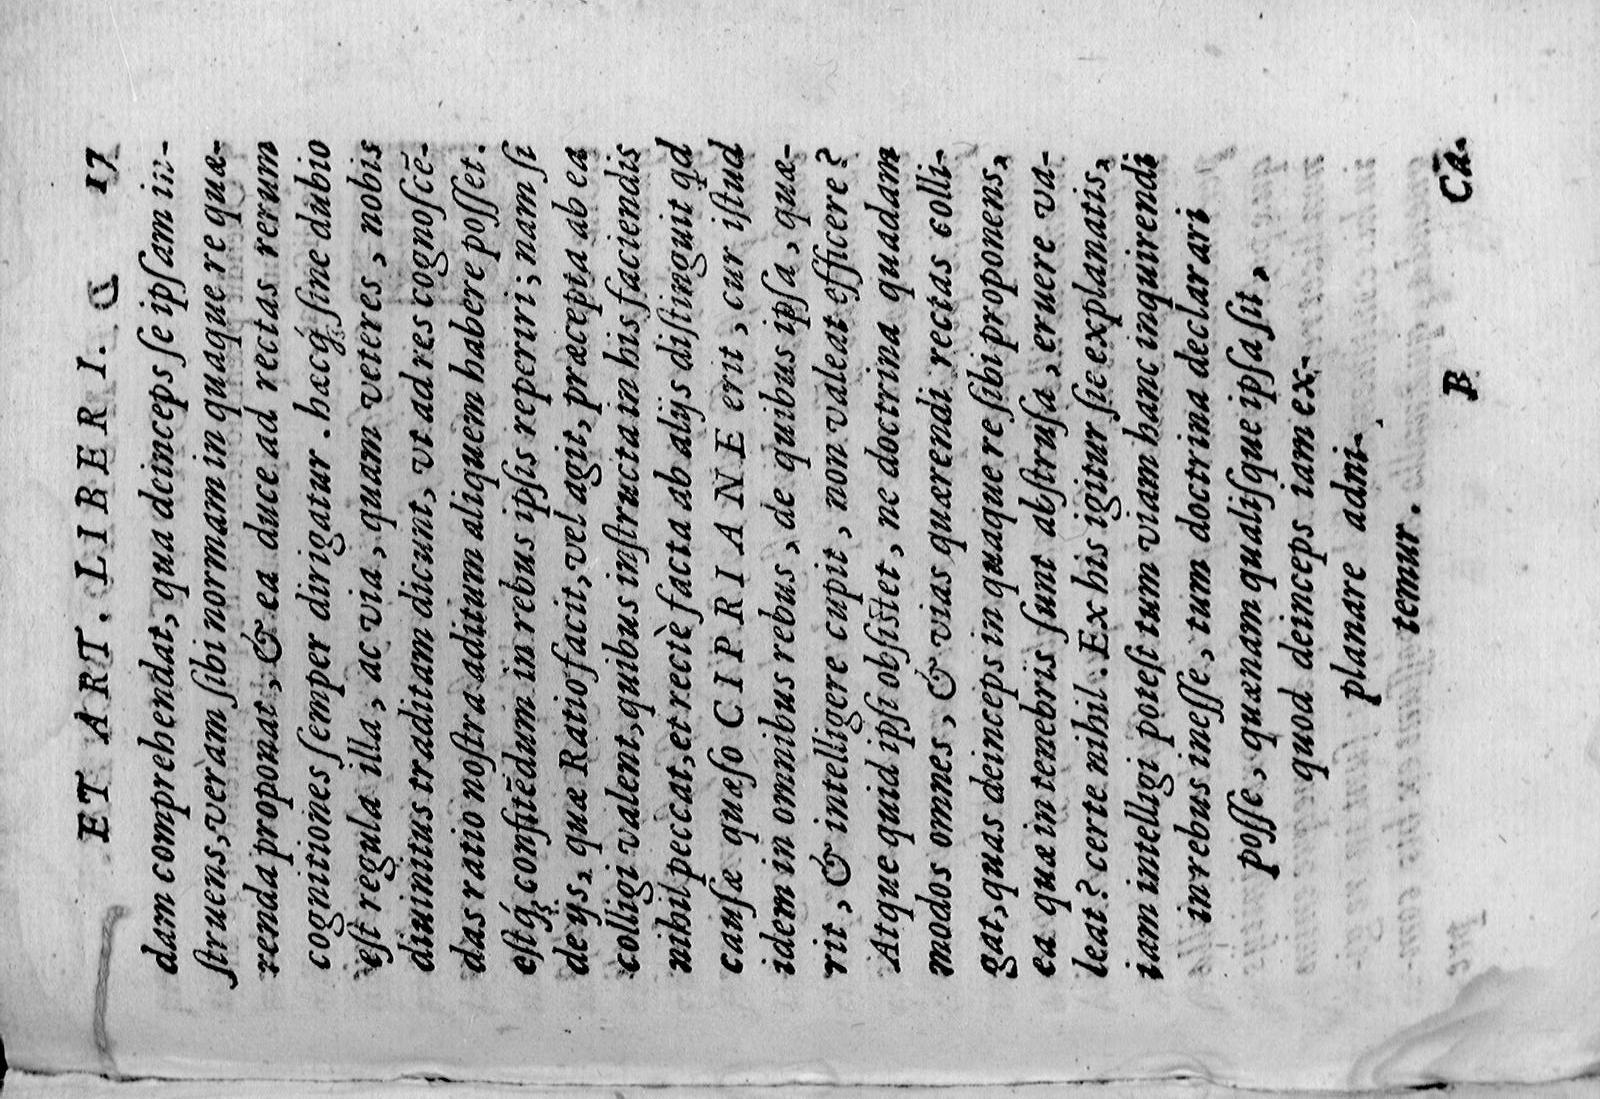 ET ART. LIBERI. 17
dam comprehendat, qua deinceps se ipsam in-
ſtruens, veram ſibi normam in quaque re quæ-
renda proponat, & ea duce ad rectas rerum
cognitiones ſemper dirigatur. hæcq́; ſine dubio
eſt regula illa, ac via, quam veteres, nobis
diuinitus traditam dicunt, vt ad res cognoſcē-
das ratio noſtra aditum aliquem habere poſſet.
eſtq́; conſitēdum in rebus ipſis reperiri; nam ſi
de ijs, quæ Ratio facit, vel agit, præcepta ab ea
colligi valent, quibus inſtructa in his faciendis
nihil peccat, et rectè facta ab alijs diſtinguit qd
cauſæ quæſo CIPRIANE erit, cur iſtud
idem in omnibus rebus, de quibus ipſa, quæ-
rit, & intelligere cupit, non valeat efficere?
Atque quid ipſi obſiſtet, ne doctrina quadam
modos omnes, & vias quærendi rectas colli-
gat, quas deinceps in quaque re ſibi proponens,
ea quæ in tenebris ſunt abſtruſa, eruere va-
leat? certe nihil. Ex his igitur ſic explanatis,
iam intelligi poteſt tum viam hanc inquirendi
in rebus ineſſe, tum doctrina declarari
poſſe, quænam qualiſque ipſa ſit,
quod deinceps iam ex-
planare adni-
temur.
B Cā-